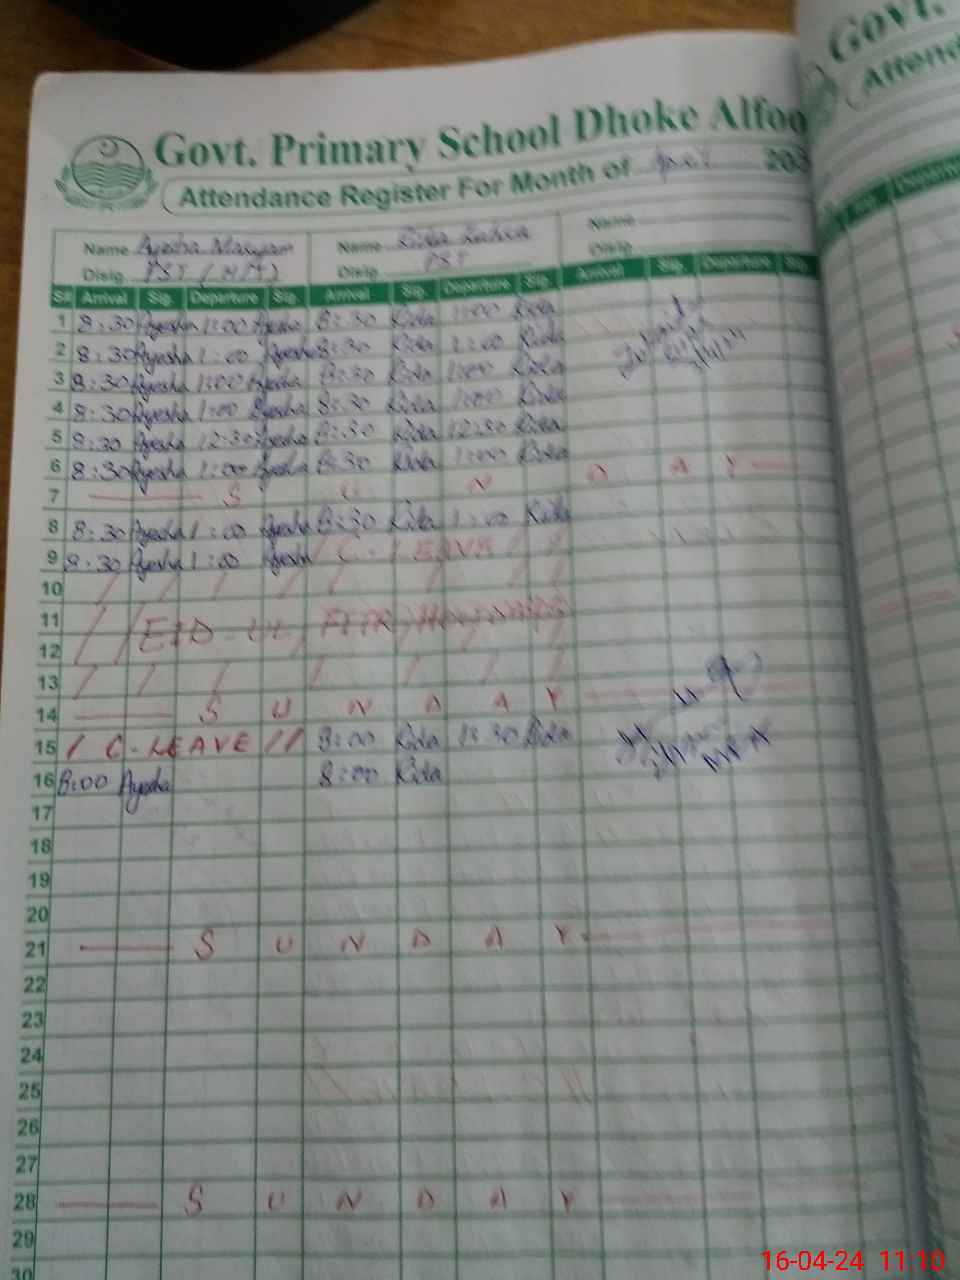 Govt.
Govt. Primary School Dhoke Alfoo
Attend
Attendance Register For Month of April 202
Departure
Name Ayesha Maryam Name Rida Zahra Name
Disig. PST (H/T) Disig. PST Disig.
S# Arrival Sig. Departure Sig. Arrival Sig. Departure Sig. Arrival Sig. Departure Sig.
1 8:30 Ayesha 1:00 Ayesha 8:30 Rida 1:00 Rida
2 8:30 Ayesha 1:00 Ayesha 8:30 Rida 1:00 Rida
3 8:30 Ayesha 1:00 Ayesha 8:30 Rida 1:00 Rida
4 8:30 Ayesha 1:00 Ayesha 8:30 Rida 1:00 Rida
5 8:30 Ayesha 12:30 Ayesha 8:30 Rida 12:30 Rida
6 8:30 Ayesha 1:00 Ayesha 8:30 Rida 1:00 Rida
7 S U N D A Y
8 8:30 Ayesha 1:00 Ayesha 8:30 Rida 1:00 Rida
9 8:30 Ayesha 1:00 Ayesha / C. LEAVE / /
10
11 EID-UL FITR HOLIDAYS
12
13
14 S U N D A Y
15 / C-LEAVE // 8:00 Rida 1:30 Rida
16 8:00 Ayesha 8:00 Rida
17
18
19
20
21 S U N D A Y
22
23
24
25
26
27
28 S U N D A Y
29
30
16-04-24 11:10